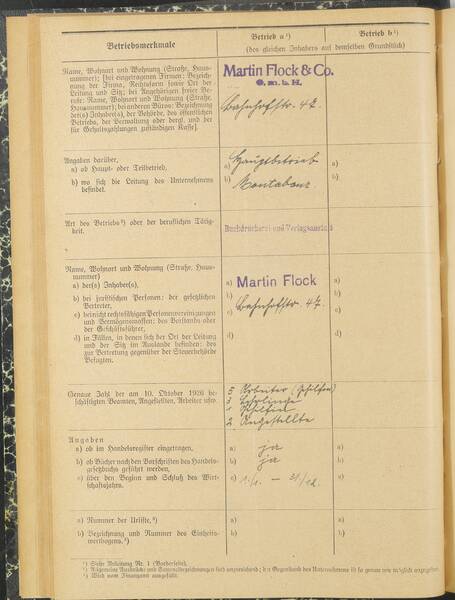 Betriebsmerkmale
Betrieb a¹)
Betrieb b¹)
(des gleichen Inhabers auf demselben Grundstück)
Name, Wohnort und Wohnung (Straße, Haus-
nummer) [bei eingetragenen Firmen: Bezeich-
nung der Firma, Rechtsform sowie Ort der
Leitung und Sitz; bei Angehörigen freier Be-
rufe: Name, Wohnort und Wohnung (Straße,
Hausnummer); bei anderen Büros: Bezeichnung
der(s) Inhaber(s), der Behörde, des öffentlichen
Betriebs, der Verwaltung oder dergl. und der
für Gehaltszahlungen zuständigen Kasse].
Martin Flock & Co.
G. m. b. H.
Bahnhofstr. 47
Angaben darüber,
a) ob Haupt- oder Teilbetrieb,
b) wo sich die Leitung des Unternehmens
befindet.
a) Hauptbetrieb
b) Montabaur
a)
b)
Art des Betriebs²) oder der beruflichen Tätig-
keit.
Buchdruckerei und Verlagsanstalt
Name, Wohnort und Wohnung (Straße, Haus-
nummer)
a) der(s) Inhaber(s),
b) bei juristischen Personen: der gesetzlichen
Vertreter,
c) bei nicht rechtsfähigen Personenvereinigungen
und Vermögensmassen: des Vorstands oder
der Geschäftsführer,
d) in Fällen, in denen sich der Ort der Leitung
und der Sitz im Auslande befinden: des
zur Vertretung gegenüber der Steuerbehörde
Befugten.
a) Martin Flock
b)
c) Bahnhofstr. 47.
d)
a)
b)
c)
d)
Genaue Zahl der am 10. Oktober 1926 be-
schäftigten Beamten, Angestellten, Arbeiter usw.
5 Arbeiter (Gehilfen)
3 Lehrlinge
2 Angestellte
Angaben
a) ob im Handelsregister eingetragen,
b) ob Bücher nach den Vorschriften des Handels-
gesetzbuchs geführt werden,
c) über den Beginn und Schluß des Wirt-
schaftsjahrs.
a) ja
b) ja
c) 1./1. – 31/12.
a)
b)
c)
a) Nummer der Urliste,³)
b) Bezeichnung und Nummer des Einheits-
wertbogens.³)
a)
b)
a)
b)
¹) Siehe Anleitung Nr. 1 (Vorderseite).
²) Allgemeine Ausdrücke und Sammelbezeichnungen sind unzureichend; der Gegenstand des Unternehmens ist so genau wie möglich anzugeben.
³) Wird vom Finanzamt ausgefüllt.